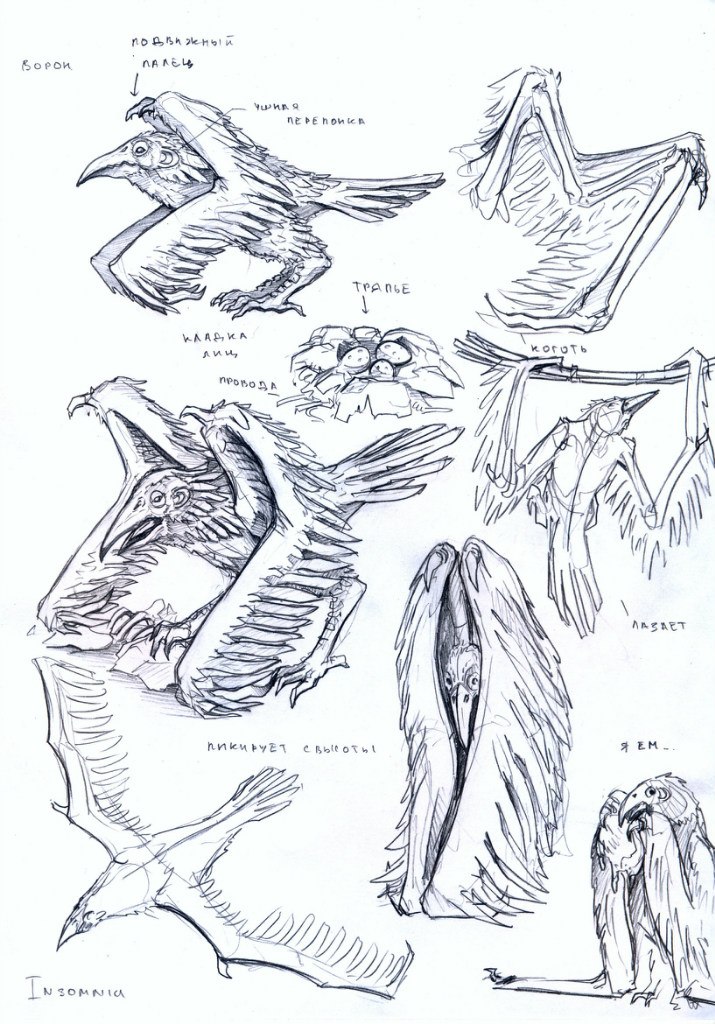 ВОРОН
ПОДВИЖНЫЙ
ПАЛЕЦ
УШНАЯ
ПЕРЕПОНКА
ТРЯПЬЕ
КЛАДКА
ЯИЦ
ПРОВОДА
КОГОТЬ
ЛАЗАЕТ
ПИКИРУЕТ С ВЫСОТЫ
Я ЕМ...
INSOMNIA